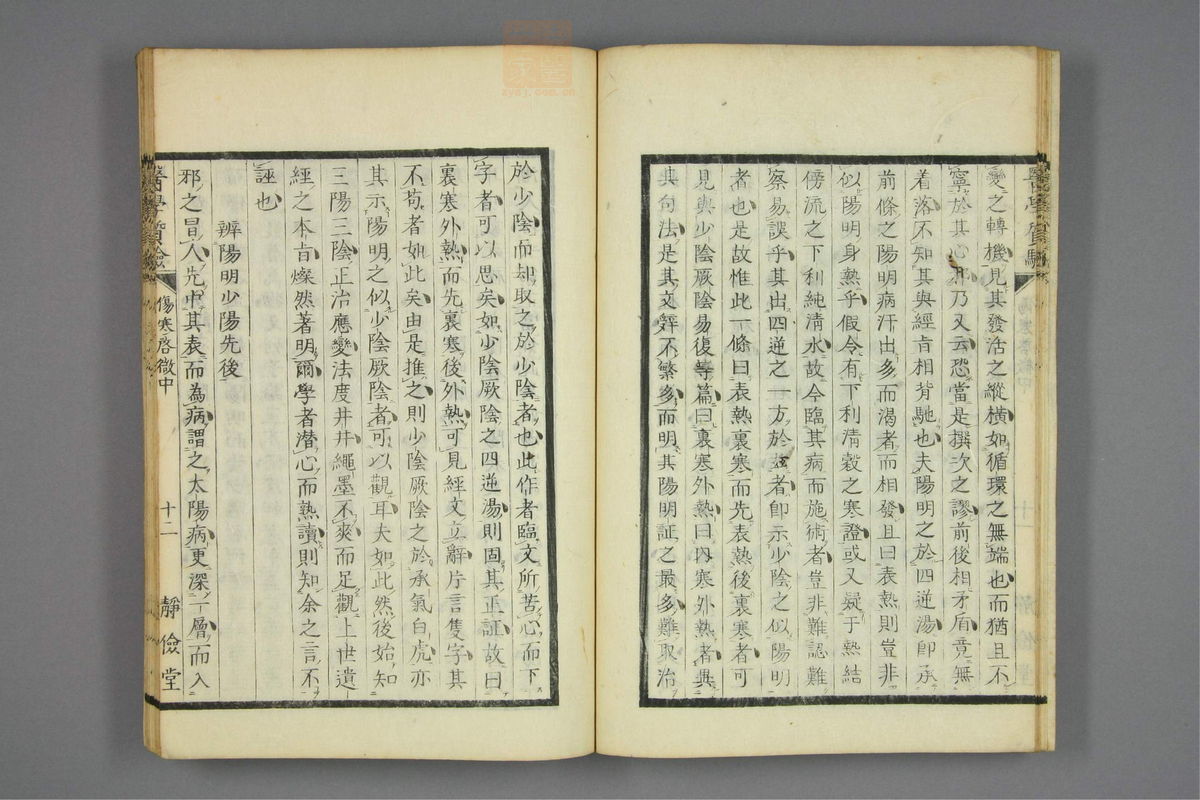 變之轉機見其發活之縱橫如循環之無端也而猶且不
寧於其心邪乃又云恐當是撰次之謬前後相矛盾竟無
着落不知其與經旨相背馳也夫陽明之於四逆湯卽承
前條之陽明病汗出多而渴者而相發且曰表熱則豈非
似陽明身熱乎假令有下利清穀之寒證或又疑于熱結
傍流之下利純清水故令臨其病而施術者豈非難認難
察易誤乎其出四逆之一方於玆者卽示少陰之似陽明
者也是故惟此一條曰表熱裏寒而先表熱後裏寒者可
見與少陰厥陰易復等篇曰裏寒外熱曰內寒外熱者異
其句法是其文辤不繁多而明其陽明証之最多難取治
於少陰而却取之於少陰者也此作者臨文所苦心而下
字者可以思矣如少陰厥陰之四逆湯則固其正証故曰
裏寒外熱而先裏寒後外熱可見經文立辭片言隻字其
不苟者如此矣由是推之則少陰厥陰之於承氣白虎亦
其示陽明之似少陰厥陰者可以觀耳夫如此然後始知
三陽三陰正治應變法度井井繩墨不爽而足觀上世遺
經之本旨燦然著明爾學者潛心而熟讀則知余之言不
誣也
辨陽明少陽先後
邪之冒人先中其表而為病謂之太陽病更深一層而入
醫學質驗
傷寒啓微中
十二
靜儉堂
zysj.com.cn